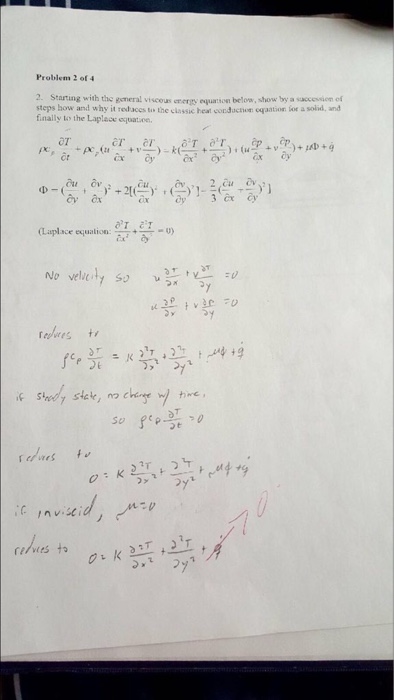 Problem 2 of 4
2. Starting with the general viscous energy equation below, show by a succession of
steps how and why it reduces to the classic heat conduction equation for a solid, and
finally to the Laplace equation.
ρc_p ∂T/∂t + ρc_p(u ∂T/∂x + v ∂T/∂y) = k(∂²T/∂x² + ∂²T/∂y²) + (u ∂p/∂x + v ∂p/∂y) + μΦ + q̇
Φ = (∂u/∂y + ∂v/∂x)² + 2[(∂u/∂x)² + (∂v/∂y)²] - 2/3 (∂u/∂x + ∂v/∂y)²]
(Laplace equation: ∂²T/∂x² + ∂²T/∂y² = 0)
No velocity so u ∂T/∂x + v ∂T/∂y = 0
u ∂P/∂x + v ∂P/∂y = 0
reduces to
ρc_p ∂T/∂t = K ∂²T/∂x² + ∂²T/∂y² + μφ + q̇
if steady state, no change w/ time,
so ρc_p ∂T/∂t = 0
reduces to
0 = K ∂²T/∂x² + ∂²T/∂y² + μφ + q̇
if inviscid, μ=0
0
reduces to 0 = K ∂²T/∂x² + ∂²T/∂y² + q̇